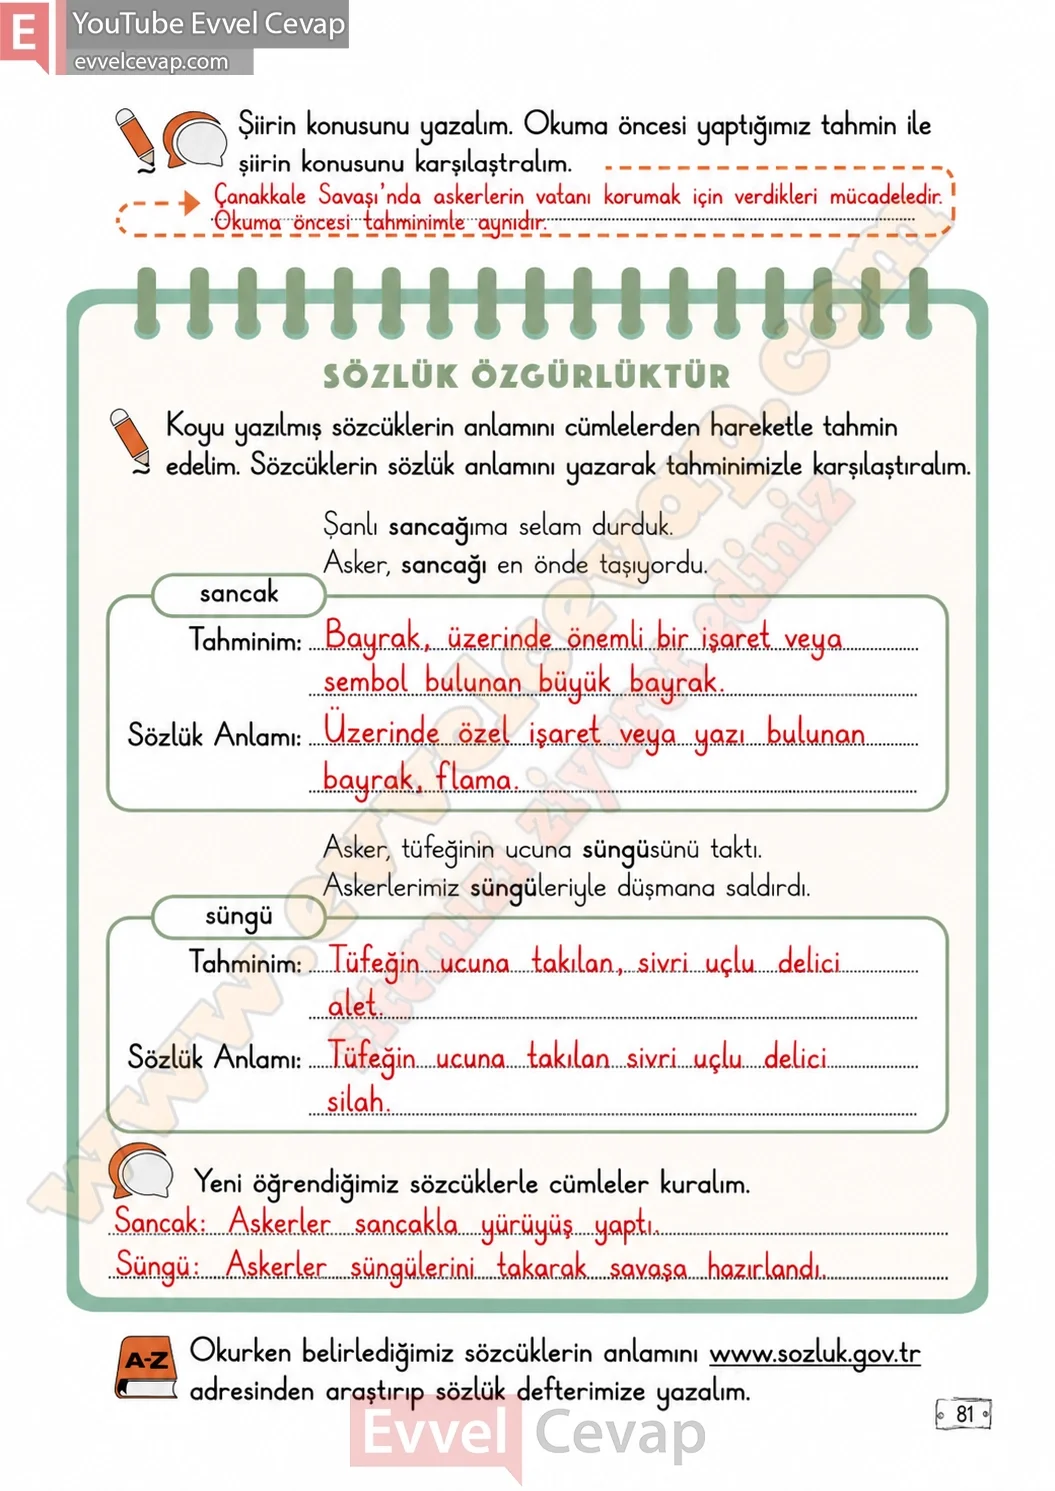 E
YouTube Evvel Cevap
evvelcevap.com
Şiirin konusunu yazalım. Okuma öncesi yaptığımız tahmin ile
şiirin konusunu karşılaştıralım.
Çanakkale Savaşı'nda askerlerin vatanı korumak için verdikleri mücadeledir.
Okuma öncesi tahminimle aynıdır.
SÖZLÜK ÖZGÜRLÜKTÜR
Koyu yazılmış sözcüklerin anlamını cümlelerden hareketle tahmin
edelim. Sözcüklerin sözlük anlamını yazarak tahminimizle karşılaştıralım.
Şanlı sancağıma selam durduk.
Asker, sancağı en önde taşıyordu.
sancak
Tahminim: Bayrak, üzerinde önemli bir işaret veya
sembol bulunan büyük bayrak.
Sözlük Anlamı: Üzerinde özel işaret veya yazı bulunan
bayrak, flama.
Asker, tüfeğinin ucuna süngüsünü taktı.
Askerlerimiz süngüleriyle düşmana saldırdı.
süngü
Tahminim: Tüfeğin ucuna takılan, sivri uçlu delici
alet.
Sözlük Anlamı: Tüfeğin ucuna takılan sivri uçlu delici
silah.
Yeni öğrendiğimiz sözcüklerle cümleler kuralım.
Sancak: Askerler sancakla yürüyüş yaptı.
Süngü: Askerler süngülerini takarak savaşa hazırlandı.
A-Z
Okurken belirlediğimiz sözcüklerin anlamını www.sozluk.gov.tr
adresinden araştırıp sözlük defterimize yazalım.
81
Evvel Cevap
www.evvelcevap.com
sitemizi ziyaret ediniz